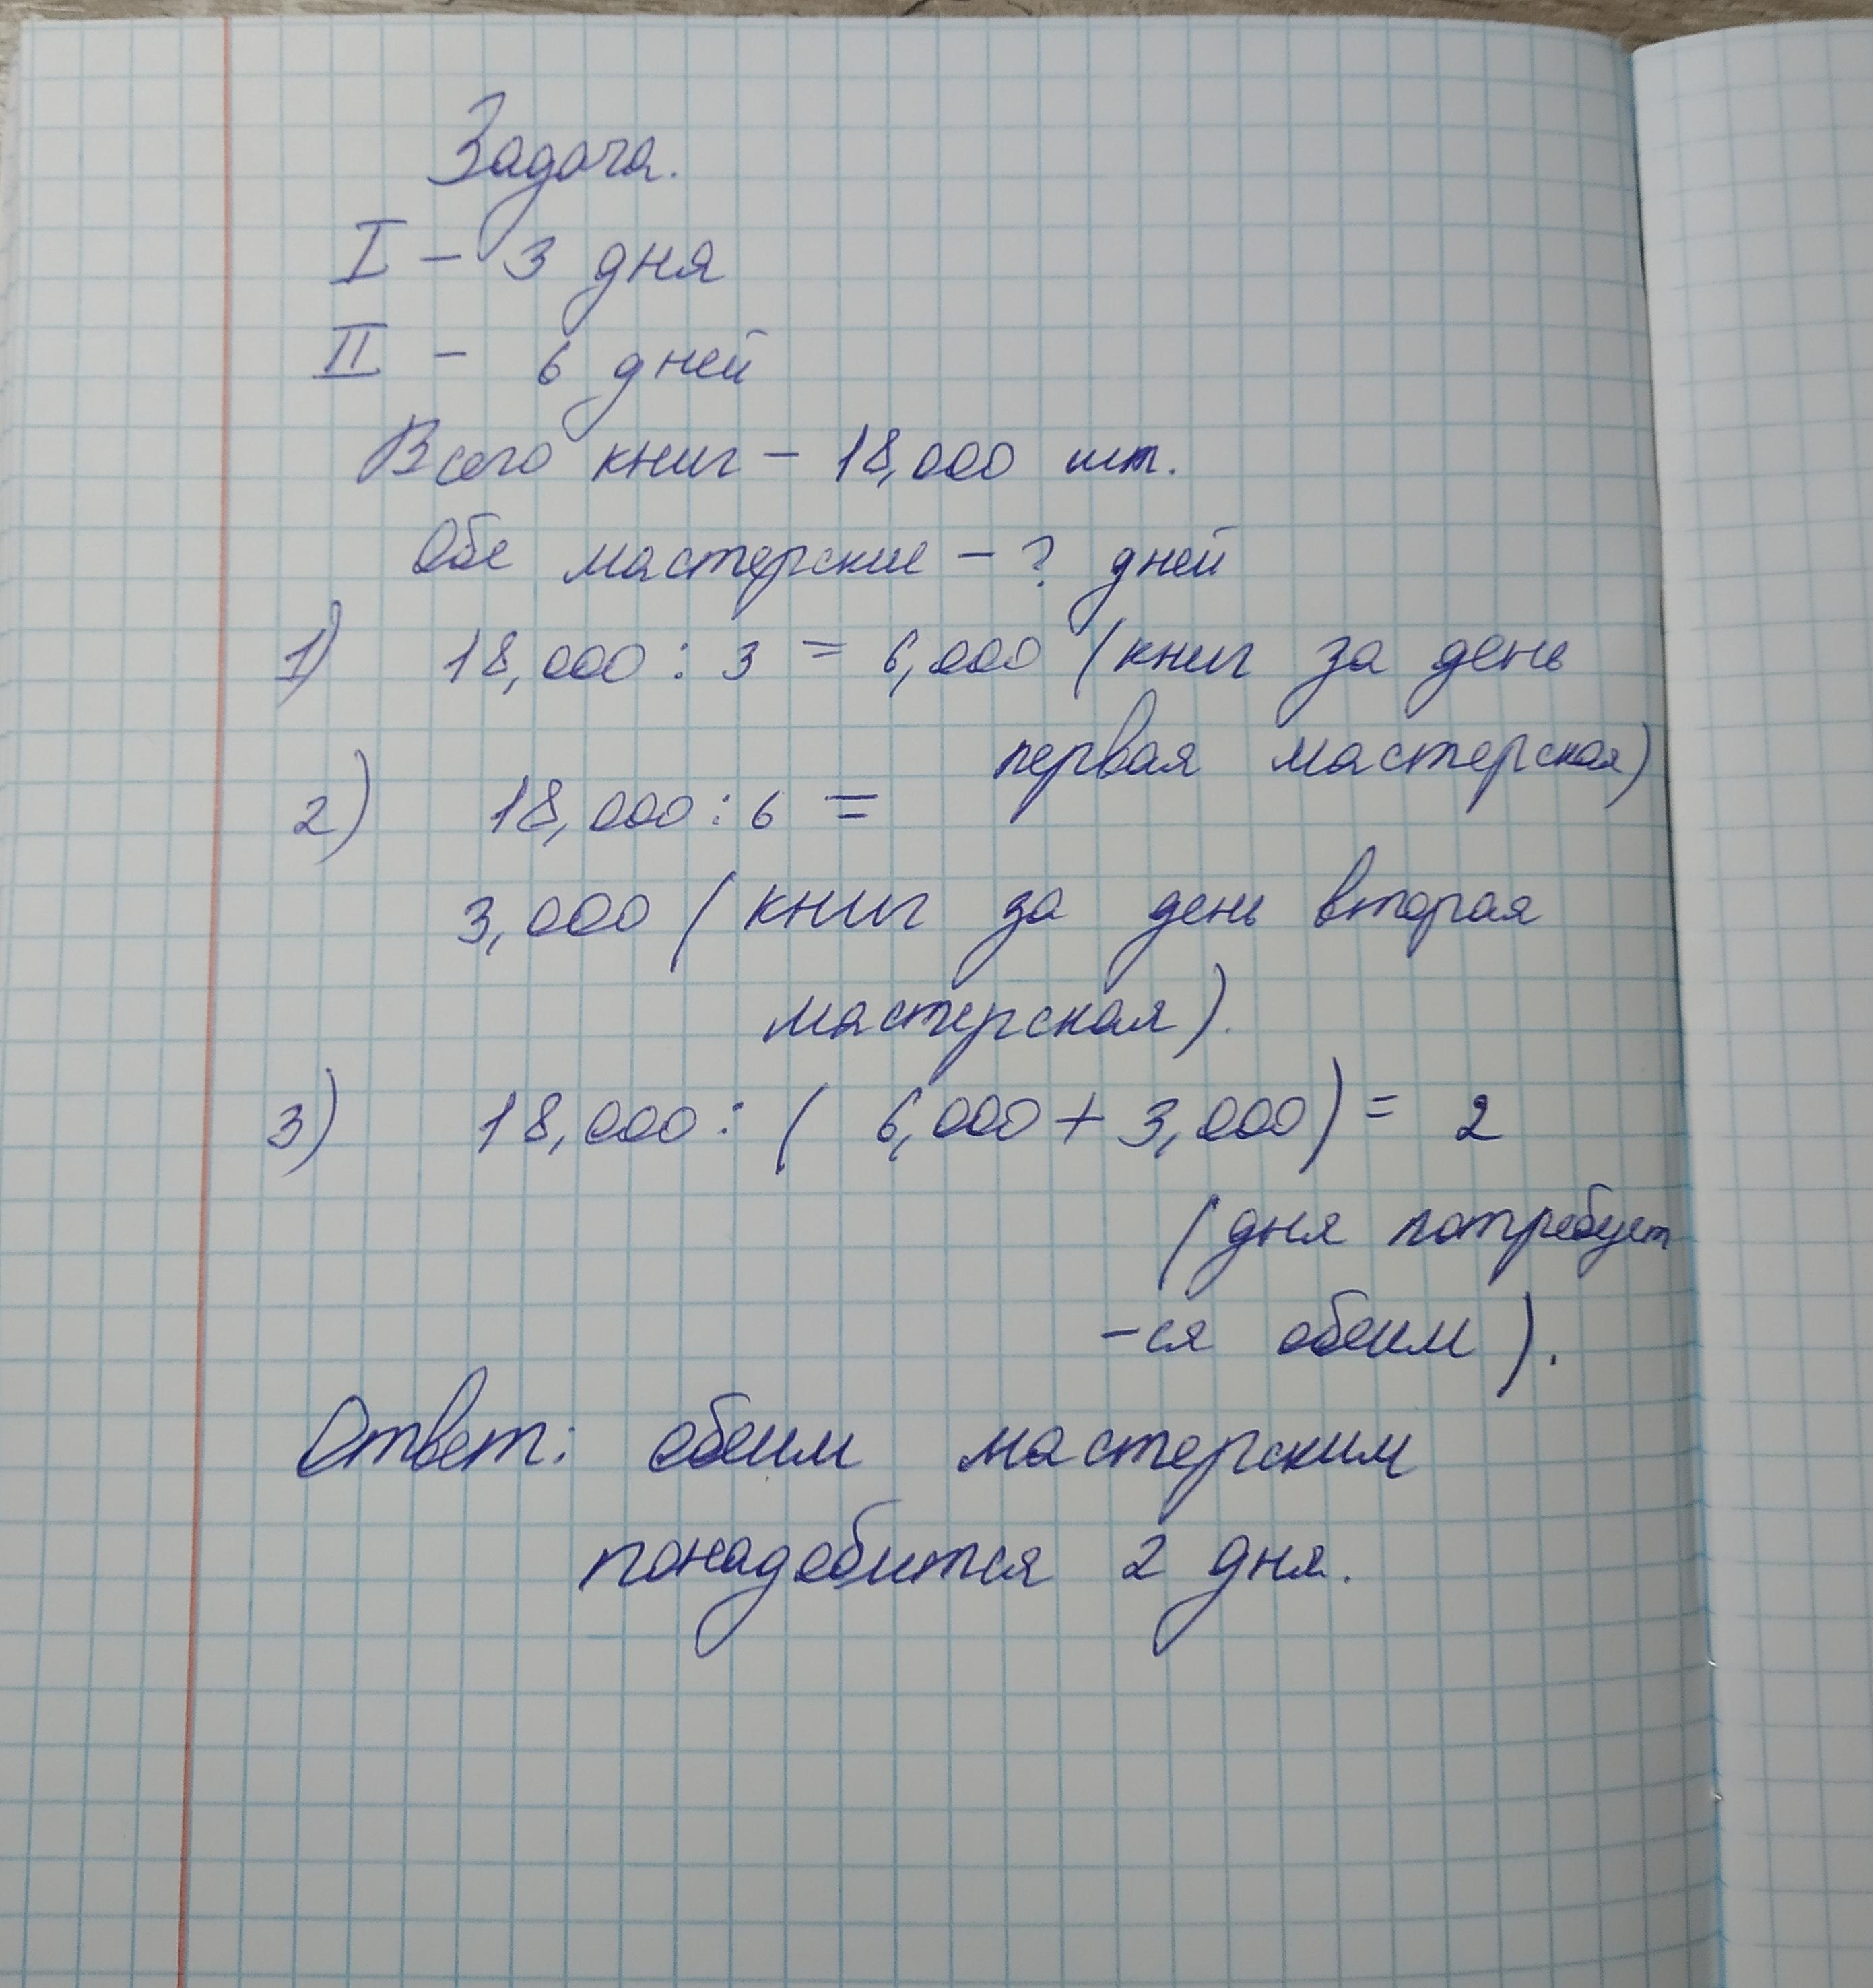 Задача.
I – 3 дня
II – 6 дней
Всего книг – 18,000 шт.
Обе мастерские – ? дней
1) 18,000 : 3 = 6,000 (книг за день
первая мастерская)
2) 18,000 : 6 =
3,000 (книг за день вторая
мастерская).
3) 18,000 : ( 6,000 + 3,000) = 2
(дня потребует
-ся обеим).
Ответ: обеим мастерским
понадобится 2 дня.